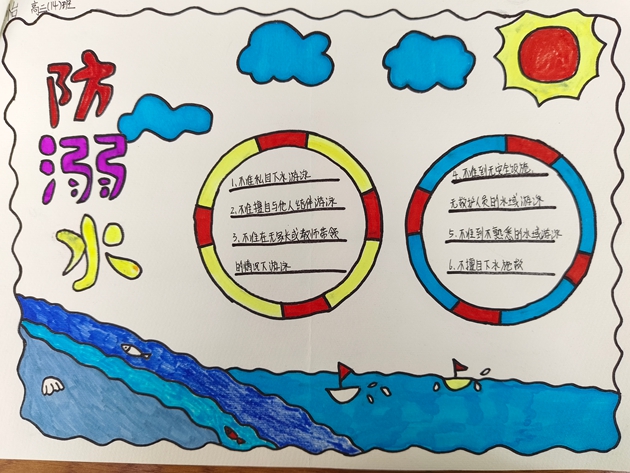 高二(14)班
防
溺
水
1.不准私自下水游泳
2.不准擅自与他人结伴游泳
3.不准在无家长或教师带领
的情况下游泳
4.不准到无安全设施
无救护人员的水域游泳
5.不准到不熟悉的水域游泳
6.不擅自下水施救